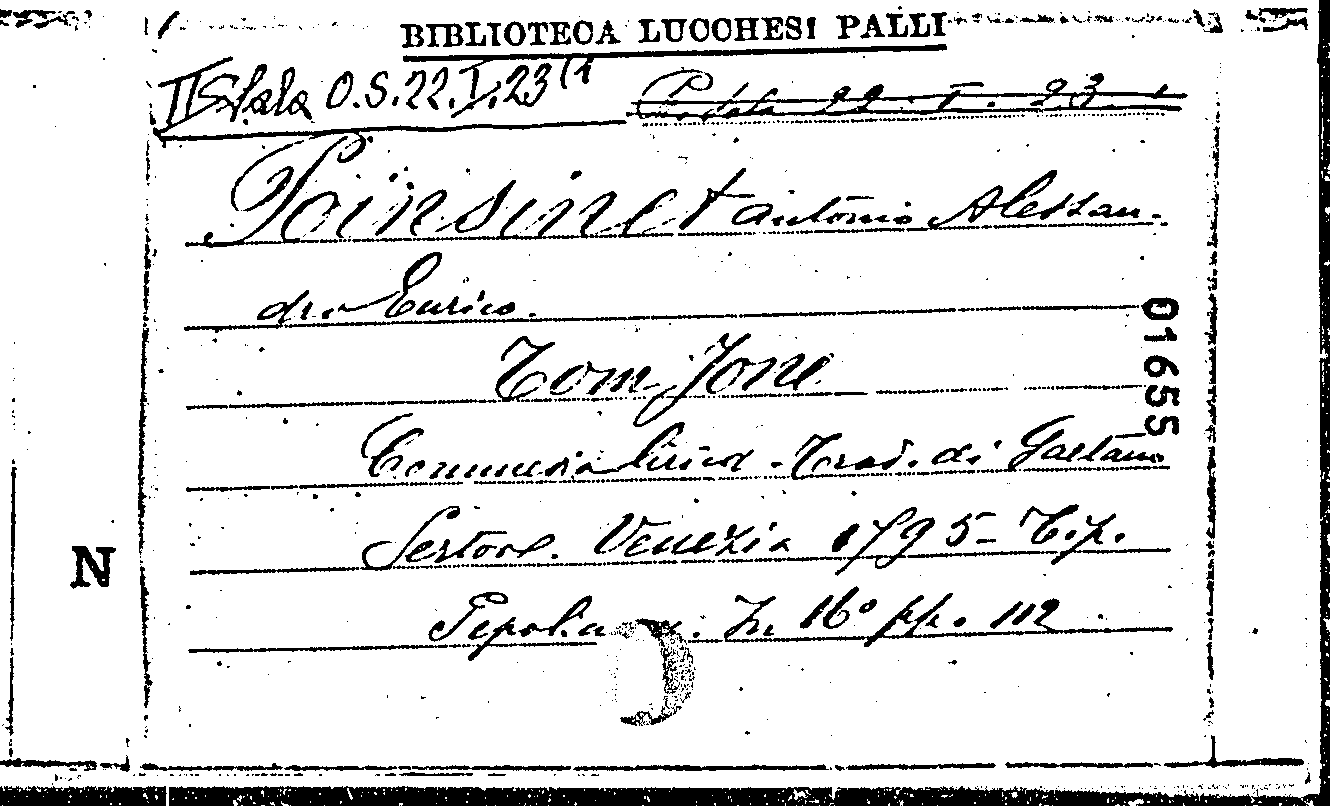 BIBLIOTECA LUCCHESI PALLI
II Sala O.S.22.I.23(1
Podala 22. I. 23. 1
Poinsinet Antonio Alessan-
dro Enrico.
Tom Jone
01655
Commedia lirica. Trad. di Gaetano
Sertore. Venezia 1795 - Tip.
N
Pepoliana. In 16° pp. 112